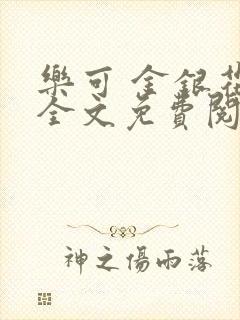 樂可 金銀花
全文免費閱
神之傷雨落